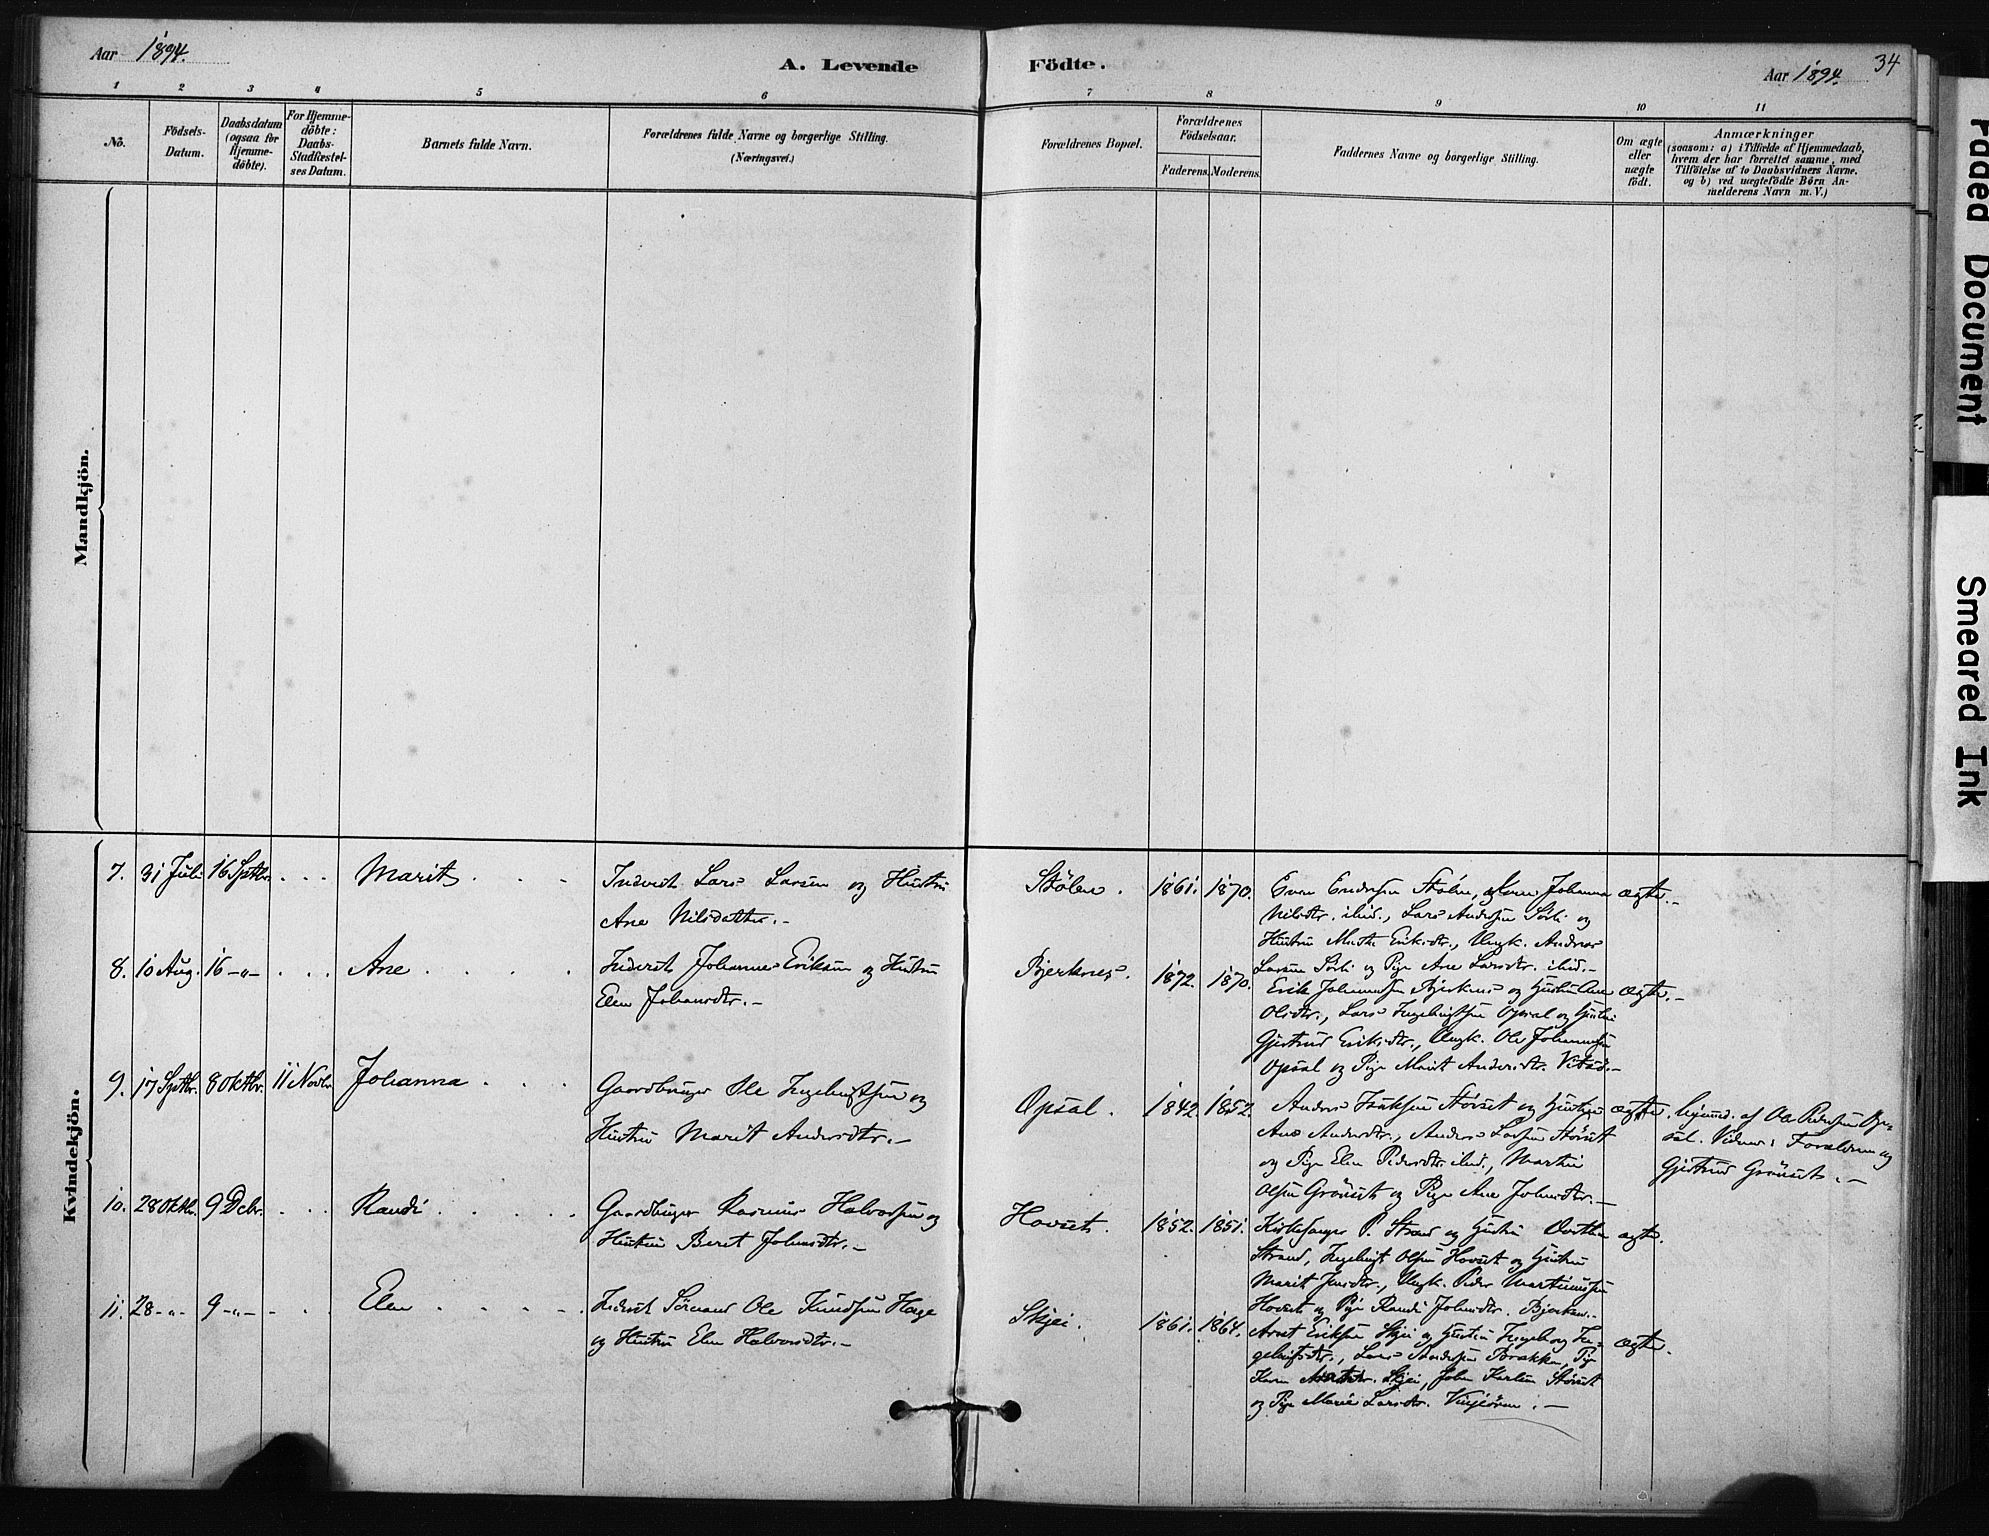 Aar 1894.
A. Levende
Födte.
Aar 1894.
34
1 2 3 4 5 6 7 8 9 10 11
No.
Födsels-
Datum.
Daabsdatum
(ogsaa for
Hjemme-
döbte).
For Hjemme-
döbte:
Daabs-
Stadfæstel-
ses Datum.
Barnets fulde Navn.
Forældrenes fulde Navne og borgerlige Stilling.
(Næringsvei.)
Forældrenes Bopæl.
Forældrenes
Födselsaar.
Faderens. Moderens.
Faddernes Navne og borgerlige Stilling.
Om ægte
eller
uægte
födt.
Anmærkninger
(saasom: a) i Tilfælde af Hjemmedaab,
hvem der har forrettet samme, med
Tilföielse af to Daabsvidners Navne.
og b) ved uægtefödte Börn An-
melderens Navn m. V.)
Mandkjön.
Kvindekjön.
7. 31 Juli 16 Septbr. . . . Marit . . .
Inderst Lars Larsen og Hustru
Ane Nilsdatter.-
Stölen. 1861. 1870.
Even Endresen Stölen, Johanna
Nilsdtr. ibid., Lars Andersen Sörli og
Hustru Marthe Eriksdtr., Ungk. Andreas
Larsen Sörli og Pige Ane Larsdtr. ibid.-
ægte.-
8. 10 Aug. 16 -"- . . . Ane . . . .
Inderst Johannes Eriksen og Hustru
Elen Johansdtr.-
Bjerknes. 1872. 1870.
Erik Johannessen Bjerknes og Hustru Ane
Olsdtr., Lars Ingebrigtsen Opsal og Hustru
Gjertrud Eriksdtr., Ungk. Ole Johannessen
Opsal og Pige Marit Andersdtr.
ægte.-
9. 17 Septbr. 8 Oktbr. 11 Novbr. Johanna . . .
Gaardbruger Ole Ingebrigtsen og
Hustru Marit Andersdtr.-
Opsal. 1842. 1852.
Anders Isaksen Störset og Hustru
Ane Andersdtr., Anders Larsen Störset
og Pige Elen Pedersdtr. ibid., Martin
Olsen Grönset og Pige Ane Johnsdtr.-
ægte.
af Ole Pedersen Op-
sal. Vidner: Forældrene og
Gjertrud Grönset.-
10. 28 Oktbr. 9 Debr. . . . Randi . . . .
Gaardbruger Rasmus Halvorsen og
Hustru Beret Johnsdtr.-
Hovset. 1852. 1851.
Kirkesanger P. Strand og Hustru Dorthea
Strand, Ingebrigt Olsen Hovset og Hustru
Marit Jensdtr., Ungk. Peder Martinussen
Hovset og Pige Randi Johnsdtr. Bjerknes.
ægte.
11. 28 -"- 9 -"- . . . Elen . . . .
Inderst Sörmand Ole Knudsen Hage
og Hustru Elen Halvorsdtr.-
Skjei. 1861. 1864.
Arnt Eriksen Skjei og Hustru Ingeborg In-
gebrigtsdtr., Lars Andersen Brække, Pige
Karen Skjei, John Karlsen Störset
og Pige Marie Larsdtr. Vinjeören.-
ægte.
Faded Document
Smeared Ink